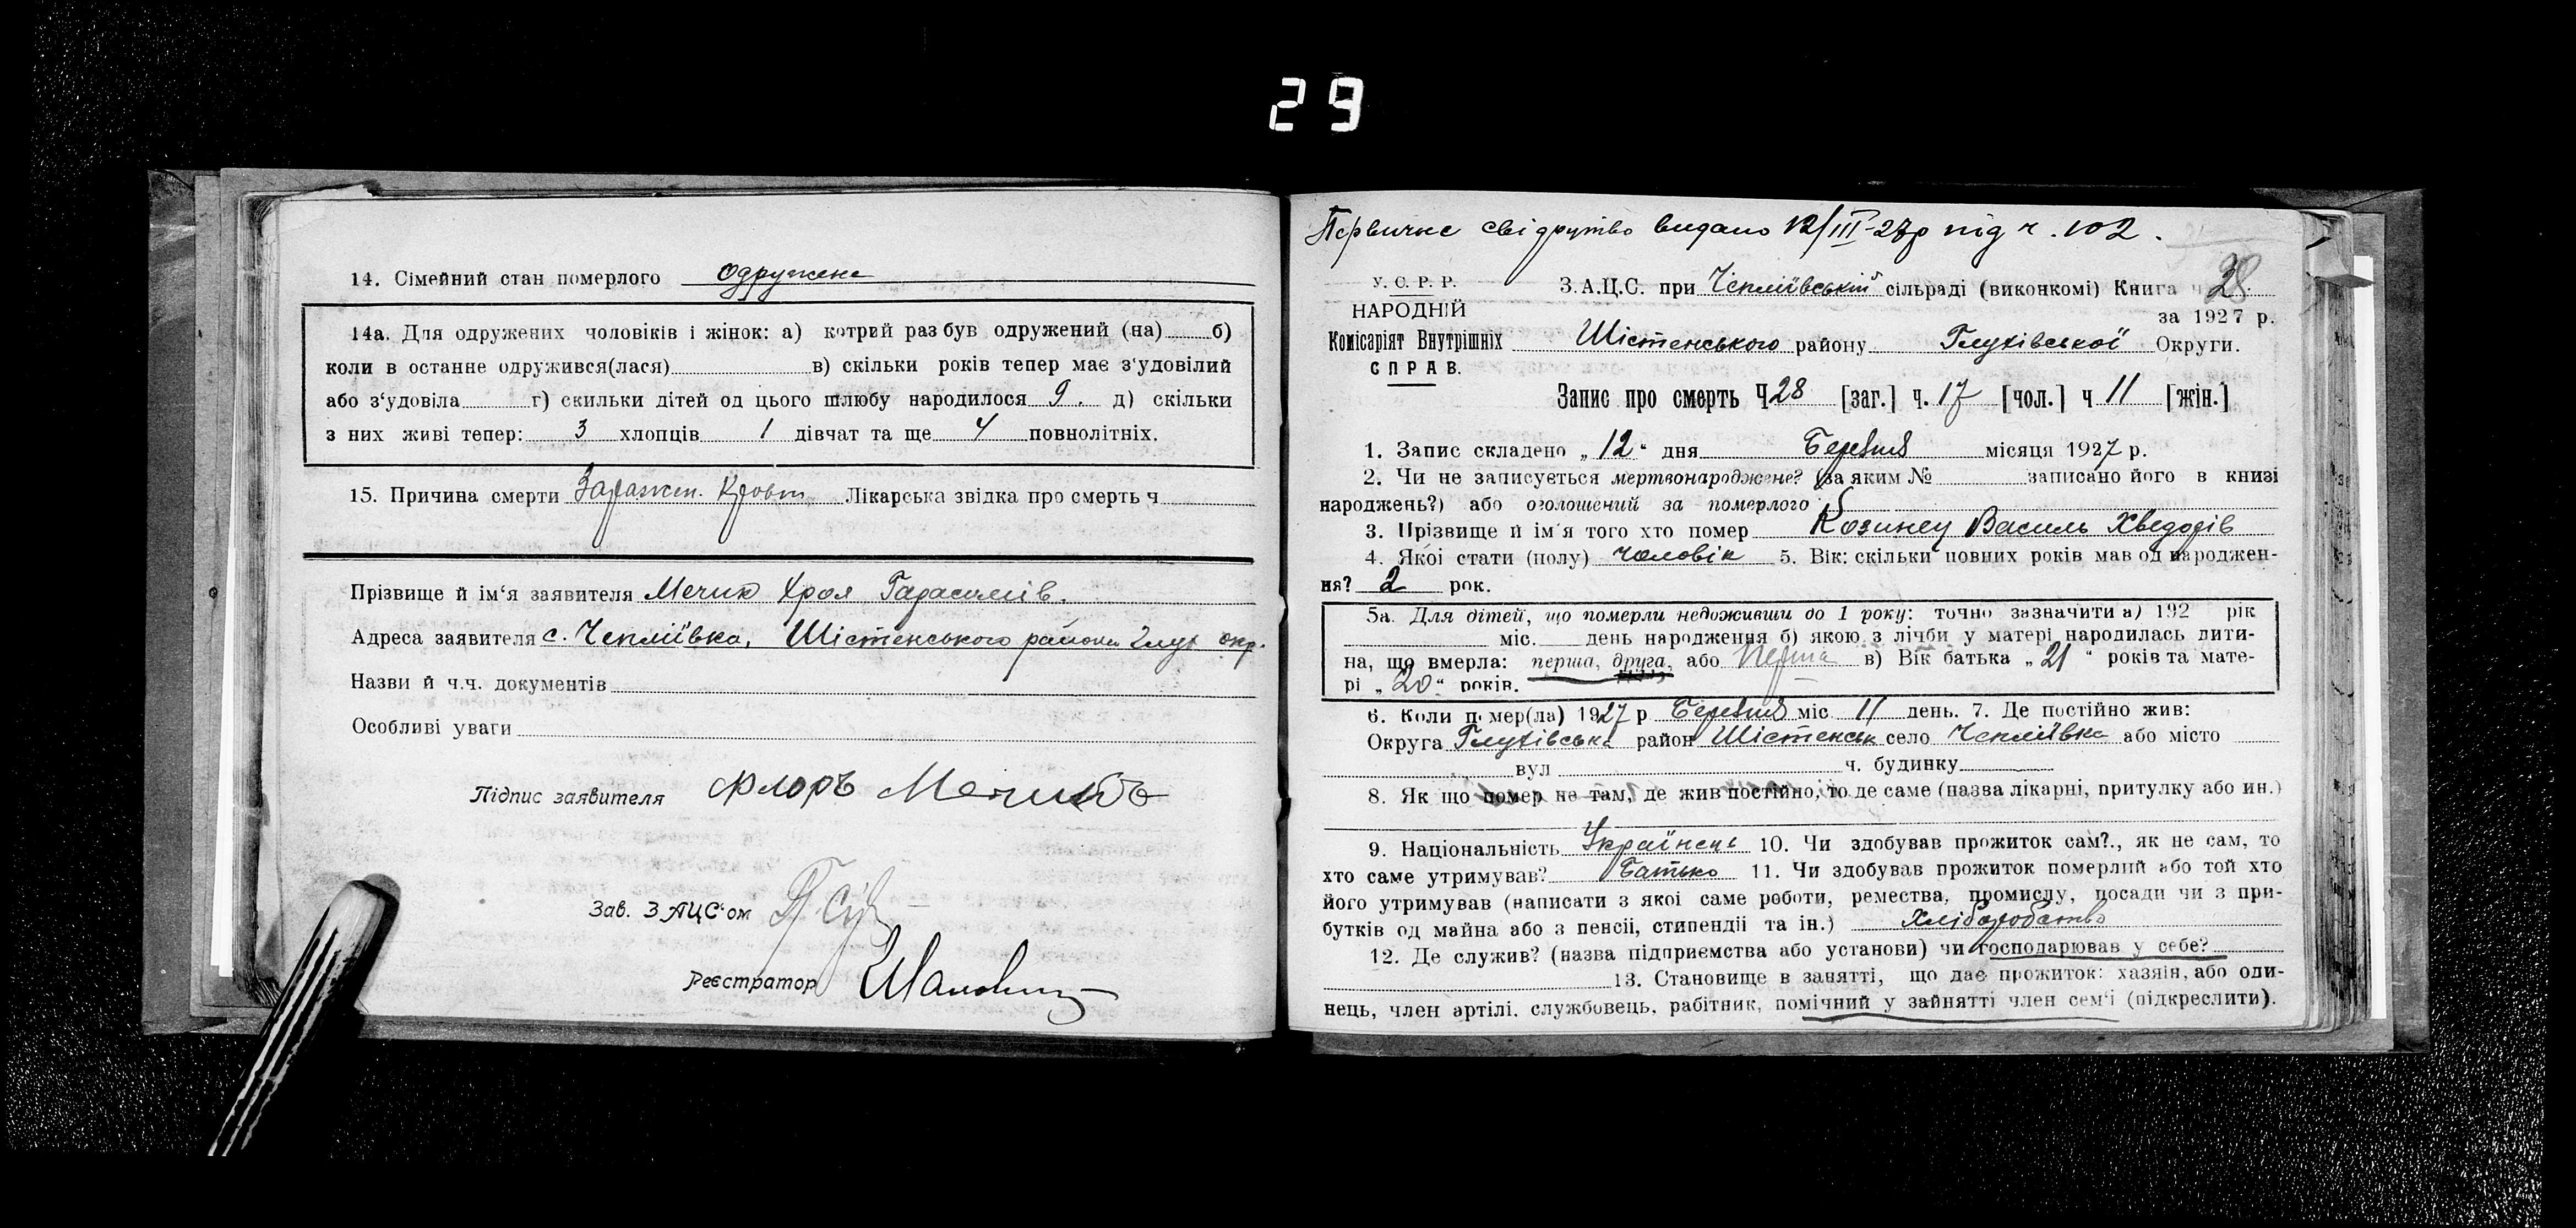 29
14. Сімейний стан померлого одружене
14а. Для одружених чоловіків і жінок: а) котрий раз був одружений (на) б)
коли в останнє одружився(лася) в) скільки років тепер має з'удовілий
або з'удовіла г) скильки дітей од цього шлюбу народилося 9. д) скільки
з них живі тепер: 3 хлопців 1 дівчат та ще 4 повнолітніх.
15. Причина смерти Заражен. Кровт Лікарська звідка про смерть ч
Прізвище й ім'я заявителя Мечик Хрол Гарасимів.
Адреса заявителя с. Чепліївка, Шістенського району Глух окр.
Назви й ч.ч. документів
Особливі уваги
Підпис заявителя Флоръ
Зав. ЗАЦС'ом
Реєстратор
Первичне свідоцтво видано 12/III-27р під ч. 102.
У. С. Р. Р.
НАРОДНІЙ
Комісаріят Внутрішніх
СПРАВ.
З.А.Ц.С. при Чепліївській сільраді (виконкомі) Книга ч
28
за 1927 р.
Шістенського району Глухівської Округи.
Запис про смерть Ч 28 [заг.] ч. 17 [чол.] ч 11 [жін.]
1. Запис складено „12" дня Березня місяця 1927 р.
2. Чи не записується мертвонароджене? (за яким № записано його в книзі
народжень?) або оголошений за померлого
3. Прізвище й ім'я того хто помер Козинец Василь Хведорів
4. Якої стати (полу) чоловік 5. Вік: скільки повних років мав од народжен-
ня? 2 рок.
5а. Для дітей, що померли недоживши до 1 року: точно зазначити а) 192 рік
міс. день народження б) якою з лічби у матері народилась дити-
на, що вмерла: перша, друга, або перша в) Вік батька „21" років та мате-
рі „20" років.
6. Коли помер(ла) 1927 р Березня міс 11 день. 7. Де постійно жив:
Округа Глухівська район Шістенськ село Чепліївка або місто
вул ч. будинку
8. Як що помер не там, де жив постійно, то де саме (назва лікарні, притулку або ин.)
9. Національність Українець 10. Чи здобував прожиток сам?., як не сам, то
хто саме утримував? Батько 11. Чи здобував прожиток померлий або той хто
його утримував (написати з якої саме роботи, ремества, промислу, посади чи з при-
бутків од майна або з пенсії, стипендії та ін.) Хліборобство
12. Де служив? (назва підприємства або установи) чи господарював у себе?
13. Становище в занятті, що дає прожиток: хазяїн, або оди-
нець, член артілі. службовець, рабітник, помічний у зайнятті член сем'і (підкреслити).